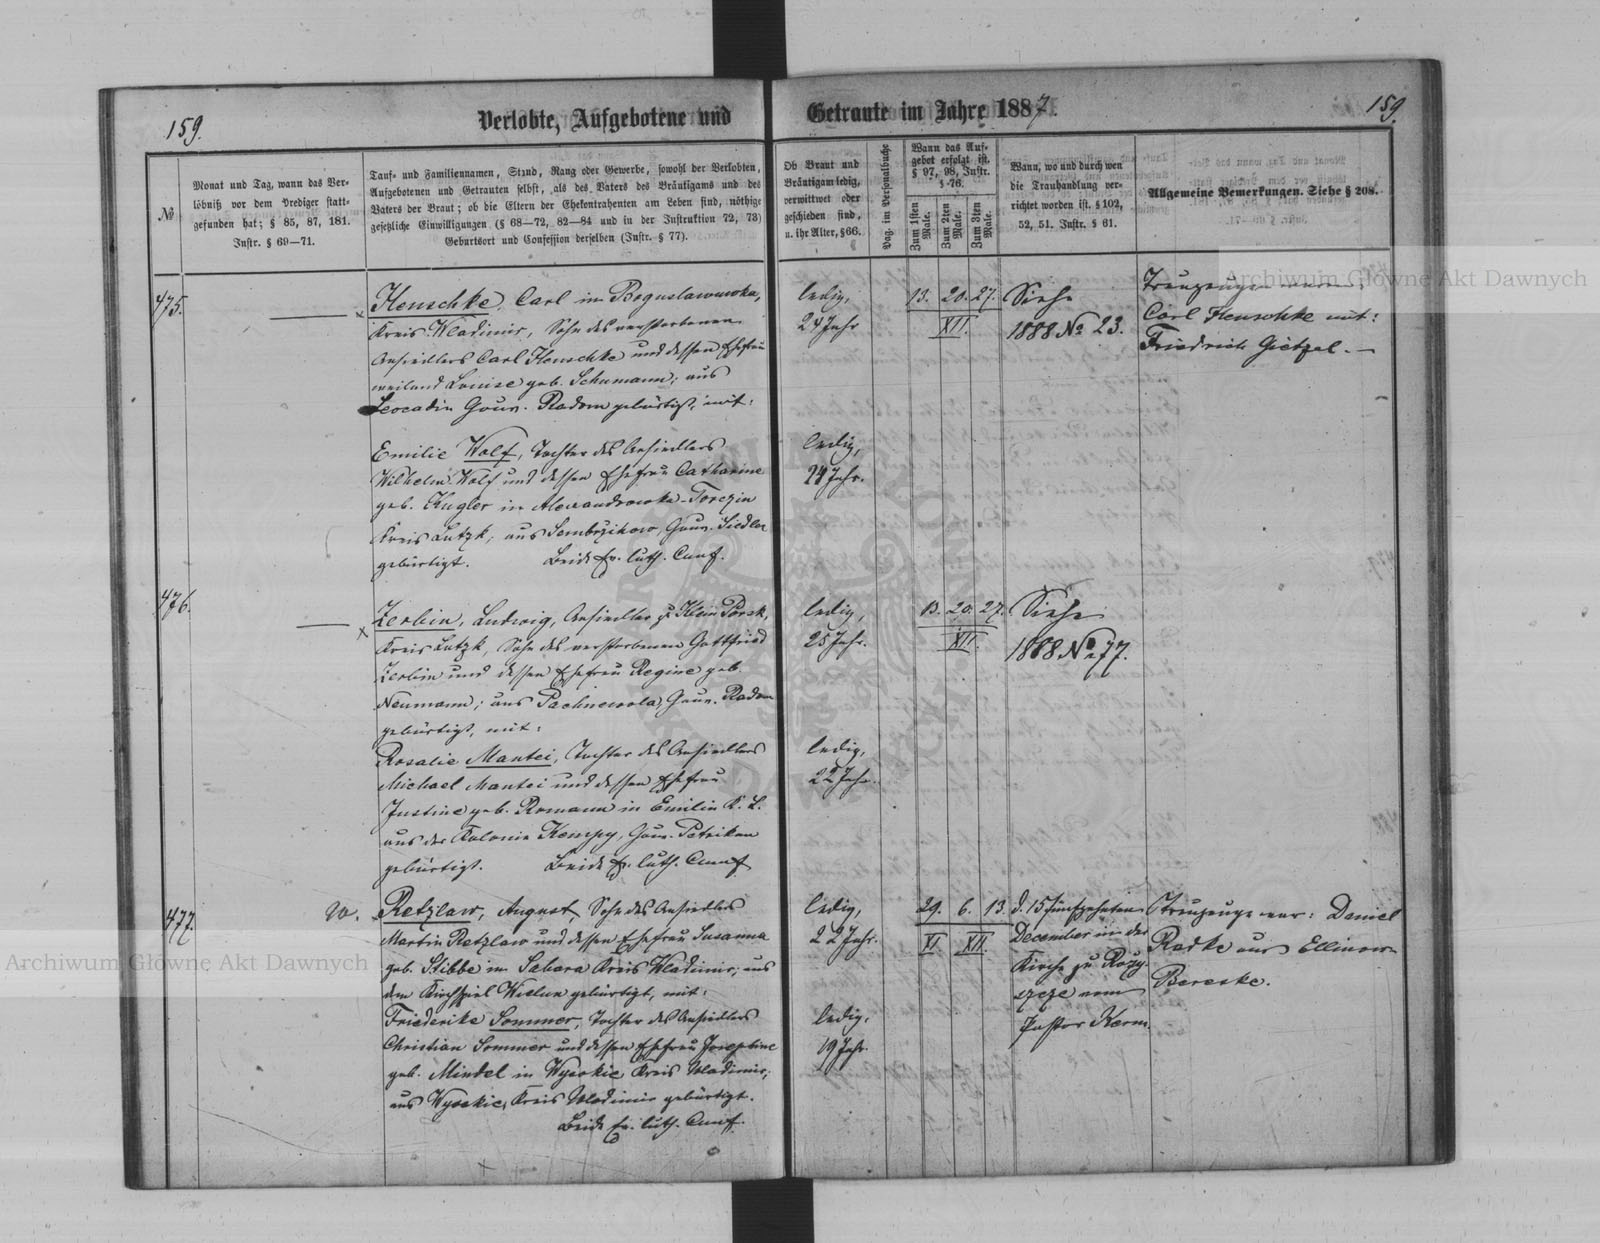 159.
Verlobte, Aufgebotene und
Getraute im Jahre 1887.
159.
№
Monat und Tag, wann das Ver-
löbniß vor dem Prediger statt-
gefunden hat; § 85, 87, 181.
Instr. § 69—71.
Tauf- und Familiennamen, Stand, Rang oder Gewerbe, sowohl der Verlobten,
Aufgebotenen und Getrauten selbst, als des Vaters des Bräutigams und des
Vaters der Braut; ob die Eltern der Ehekontrahenten am Leben sind, nöthige
gesetzliche Einwilligungen (§ 68—72, 82—84 und in der Instruktion 72, 73)
Geburtsort und Confession derselben (Instr. § 77).
Ob Braut und
Bräutigam ledig,
verwittwet oder
geschieden sind,
u. ihr Alter, § 66.
Pag. im Personalbuche
Wann das Auf-
gebot erfolgt ist.
§ 97, 98, Instr.
§ 76.
Zum 1sten Male.
Zum 2ten Male.
Zum 3ten Male.
Wann, wo und durch wen
die Trauhandlung ver-
richtet worden ist. § 102,
52, 51. Instr. § 61.
Allgemeine Bemerkungen. Siehe § 208.
475.
Henschke, Carl in Boguslawowka,
Kreis Wladimir, Sohn des verstorbenen
Ansiedlers Carl Henschke und dessen Ehefrau
weiland Louise geb. Schumann; aus
Leocadin Gouv. Radom gebürtigt, mit:
Emilie Wolf, Tochter des Ansiedlers
Wilhelm Wolf und dessen Ehefrau Catharine
geb. Kugler in Alexandrowka-Torczin
Kreis Lutzk; aus Gouv. Siedlce
gebürtigt. Beide Ev. luth. Conf.
ledig,
24 Jahr
ledig,
24 Jahr.
13. 20. 27.
XII.
Siehe
1888 № 23.
Trauzeugen waren:
Carl Henschke mit:
Friedrich Gietzel. —
476.
Zerbin, Ludwig, Ansiedler zu Klein Porsk,
Kreis Lutzk, Sohn des verstorbenen Gottfried
Zerbin und dessen Ehefrau Regine geb.
Neumann; aus Pachnewola, Gouv. Radom
gebürtigt, mit:
Rosalie Mantei, Tochter des Ansiedlers
Michael Mantei und dessen Ehefrau
Justine geb. Romann in Emilin K. L.
aus der Kolonie Kempy, Gouv. Petrikau
gebürtigt. Beide Ev. luth. Conf.
ledig,
25 Jahr.
ledig,
22 Jahr.
13. 20. 27.
XII.
Siehe
1888 № 77.
477.
Retzlaw, August, Sohn des Ansiedlers
Martin Retzlaw und dessen Ehefrau Susanna
geb. Stibbe in Sabara Kreis Wladimir; aus
dem Kirchspiel Wielun gebürtigt, mit:
Friederike Sommer, Tochter des Ansiedlers
Christian Sommer und dessen Ehefrau Josephine
geb. Mindel in Wysokie Kreis Wladimir;
aus Wysokie, Kreis Wladimir gebürtigt.
Beide Ev. luth. Conf.
ledig,
22 Jahr.
ledig,
19 Jahr.
29. 6. 13.
XI. XII.
d. 15 fünfzehnten
December in der
Kirche zu Rozy-
szcze vom
Pastor Kerm.
Trauzeuge war: Daniel
Radke aus Ellinow-
Bereske.
Archiwum Główne Akt Dawnych
Archiwum Główne Akt Dawnych